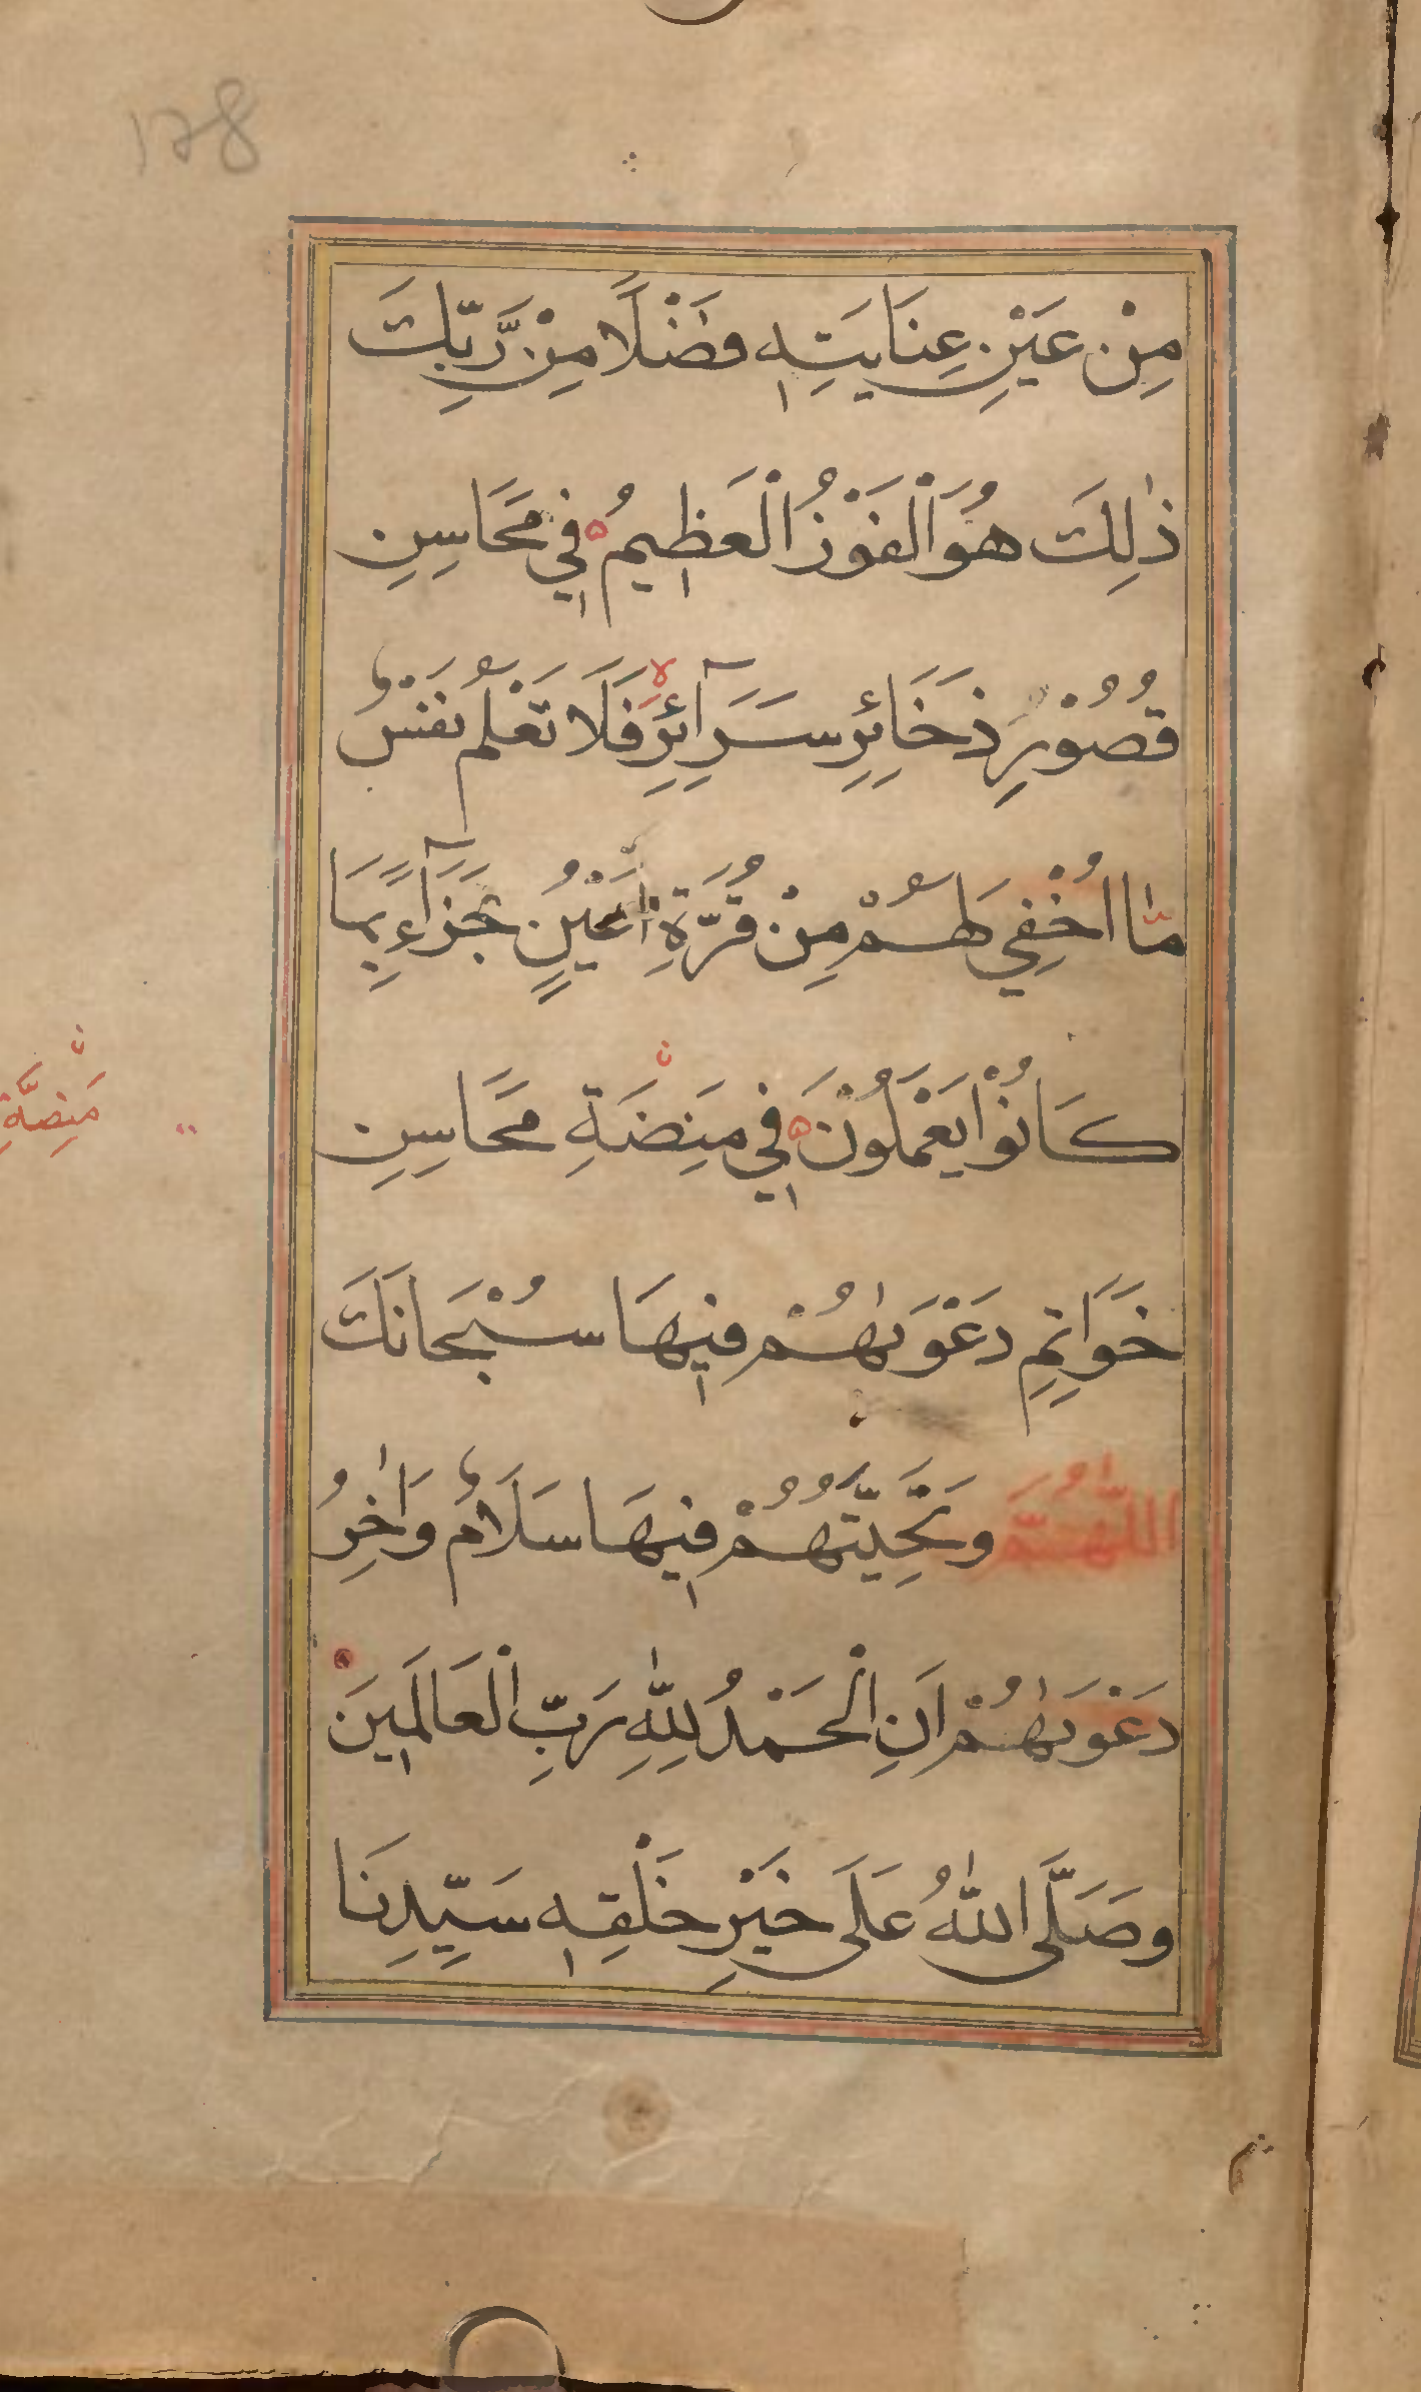 178
مِنْ عَيْنِ عِنَايَتِهٖ فَضْلًا مِنْ رَّبِّكَ
ذٰلِكَ هُوَ الْفَوْزُ الْعَظِيمُ فِي مَحَاسِنِ
قُصُوْرِ ذَخَائِرِ سَرَآئِرِ فَلَا تَعْلَمُ نَفْسٌ
مَّا اُخْفِي لَهُمْ مِنْ قُرَّةِ اَعْيُنٍ جَزَآءً بِمَا
كَانُوْا يَعْمَلُوْنَ فِي مَنِصَةِ مَحَاسِنِ
مَنِصَّةِ
خَوَاتِمِ دَعْوٰىهُمْ فِيهَا سُبْحَانَكَ
اللّٰهُمَّ وَتَحِيَّتُهُمْ فِيهَا سَلَامٌ وَاٰخِرُ
دَعْوٰىهُمْ اَنِ الْحَمْدُ لِلّٰهِ رَبِّ الْعَالَمِينَ
وَصَلَّى اللّٰهُ عَلَى خَيْرِ خَلْقِهٖ سَيِّدِنَا